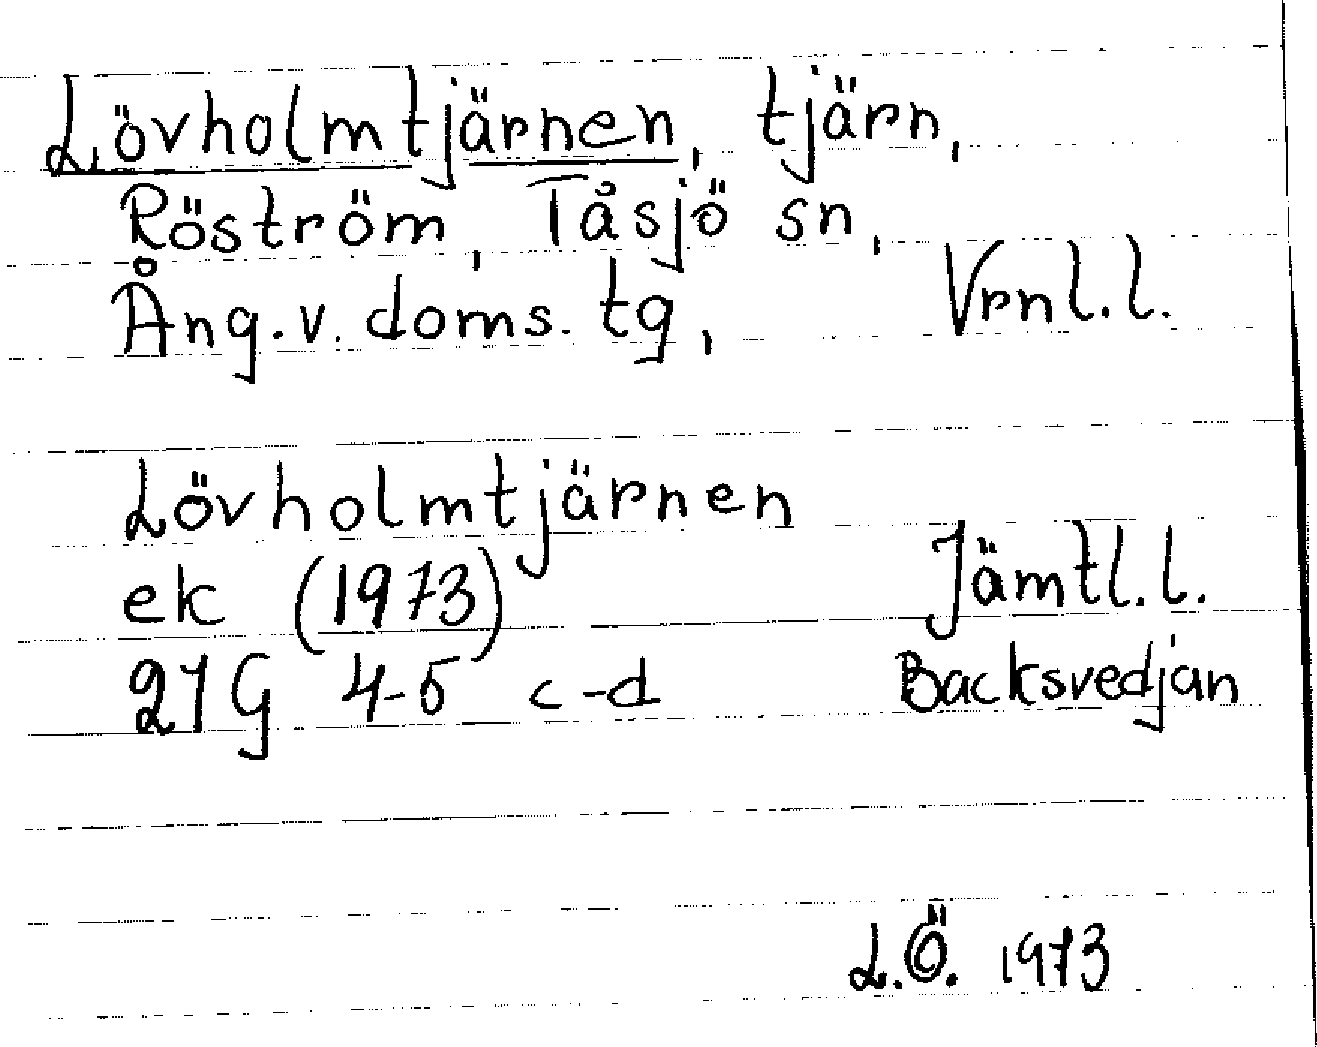 Lövholmtjärnen, tjärn,
Röström, Tåsjö sn,
Ång. v. doms. tg, Vrnl. l.
Lövholmtjärnen
ek (1973) Jämtl. l.
21G 4-5 c-d Backsvedjan
L.Ö. 1973